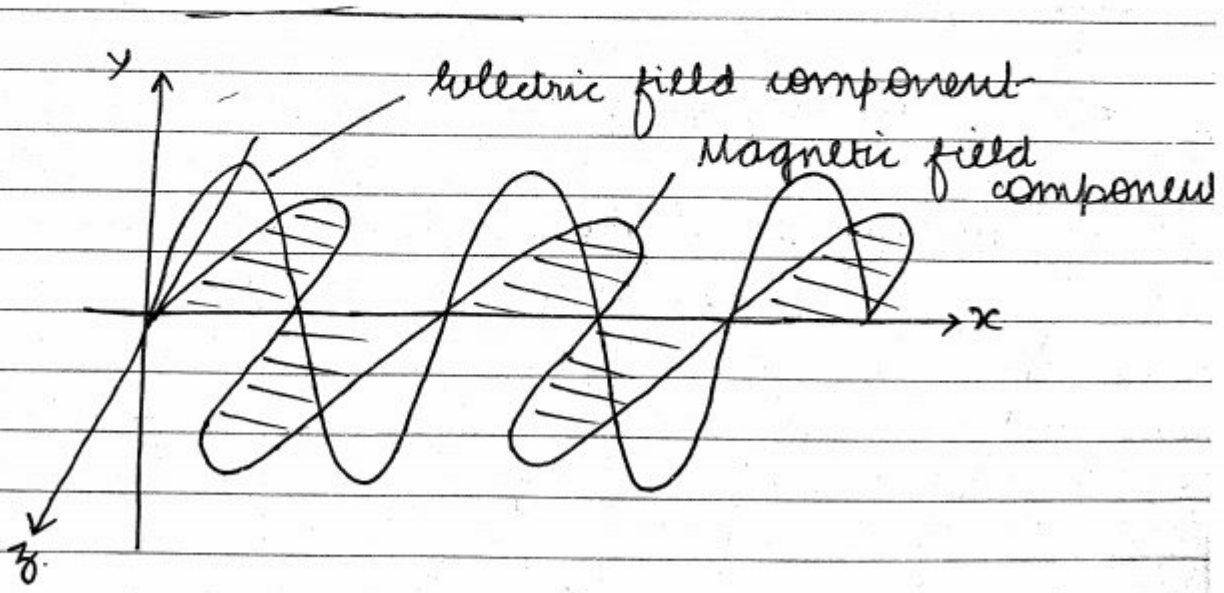 y
Electric field component
Magnetic field
component
x
z.